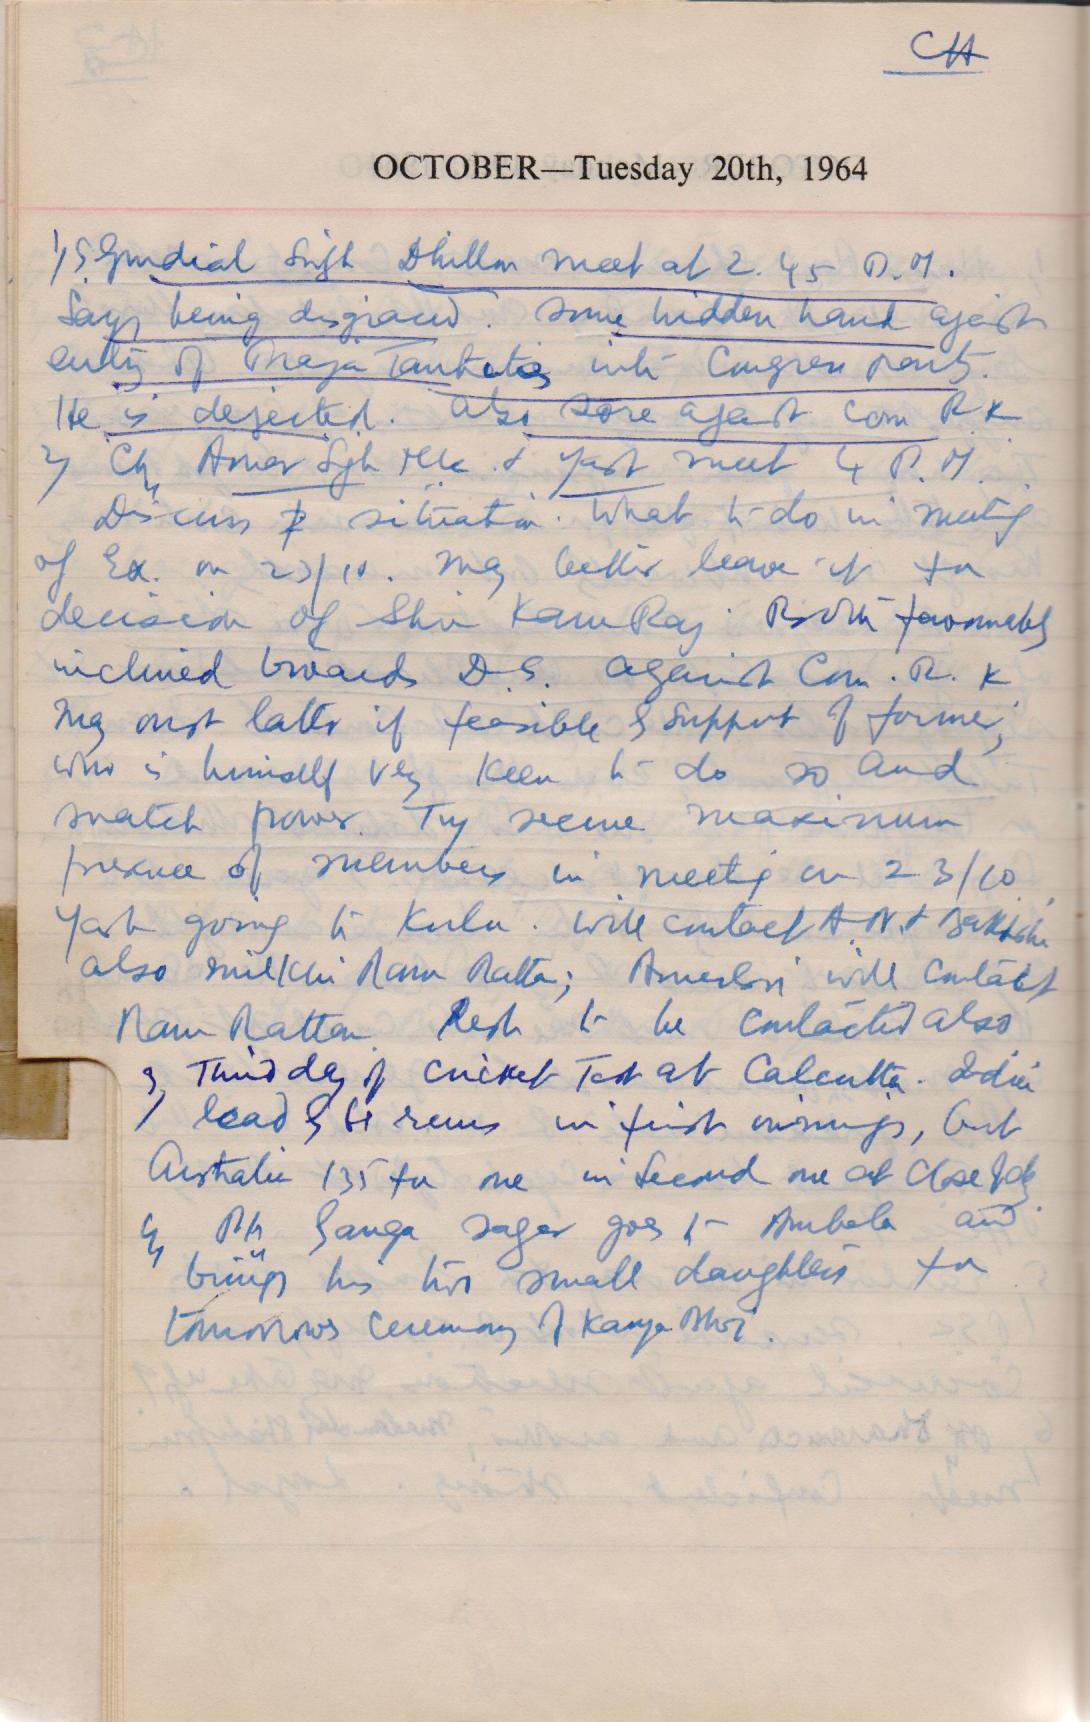 CH
OCTOBER—Tuesday 20th, 1964
1) S. Gurdial Singh Dhillon meet at 2.45 P.M.
Says being disgraced. Some hidden hand against
entry of Praja into Congress party.
He is dejected. Also sore against Com R K
2) Ch. Amar Sgh & Yash meet 4 P.M.
Discuss situation. What to do in meeting
of Ex. on 23/10. May better leave it for
decision of Shri KamRaj. Both favourably
inclined towards D.S. against Com. R. K
May oust latter if feasible & support of former,
who is himself very keen to do so and
snatch power. Try secure maximum
presence of members in meeting on 23/10
Yash going to Kulu. Will contact A.N. & Bakhshi
also Ram Rattan; will contact
Ram Rattan. Rest to be contacted also
3) Third day of Cricket Test at Calcutta. India
lead by 61 runs in first innings, but
Australia 135 for one in Second one at close of day
4) Ganga Sagar goes to Ambala and
brings his two small daughters for
tomorrows ceremony of Kanya